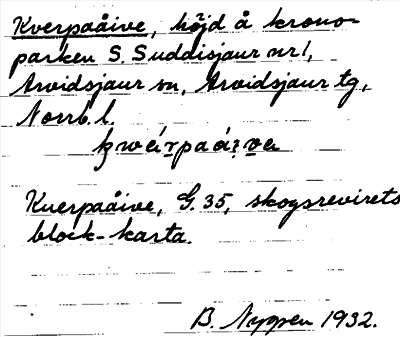 Kverpaåive, höjd å krono-
parken S. Suddisjaur nr 1,
Arvidsjaur sn, Arvidsjaur tg,
Norrb. l.
Kverpaåive, G. 35, skogsrevirets
block-karta.
B. Nyppen 1932.